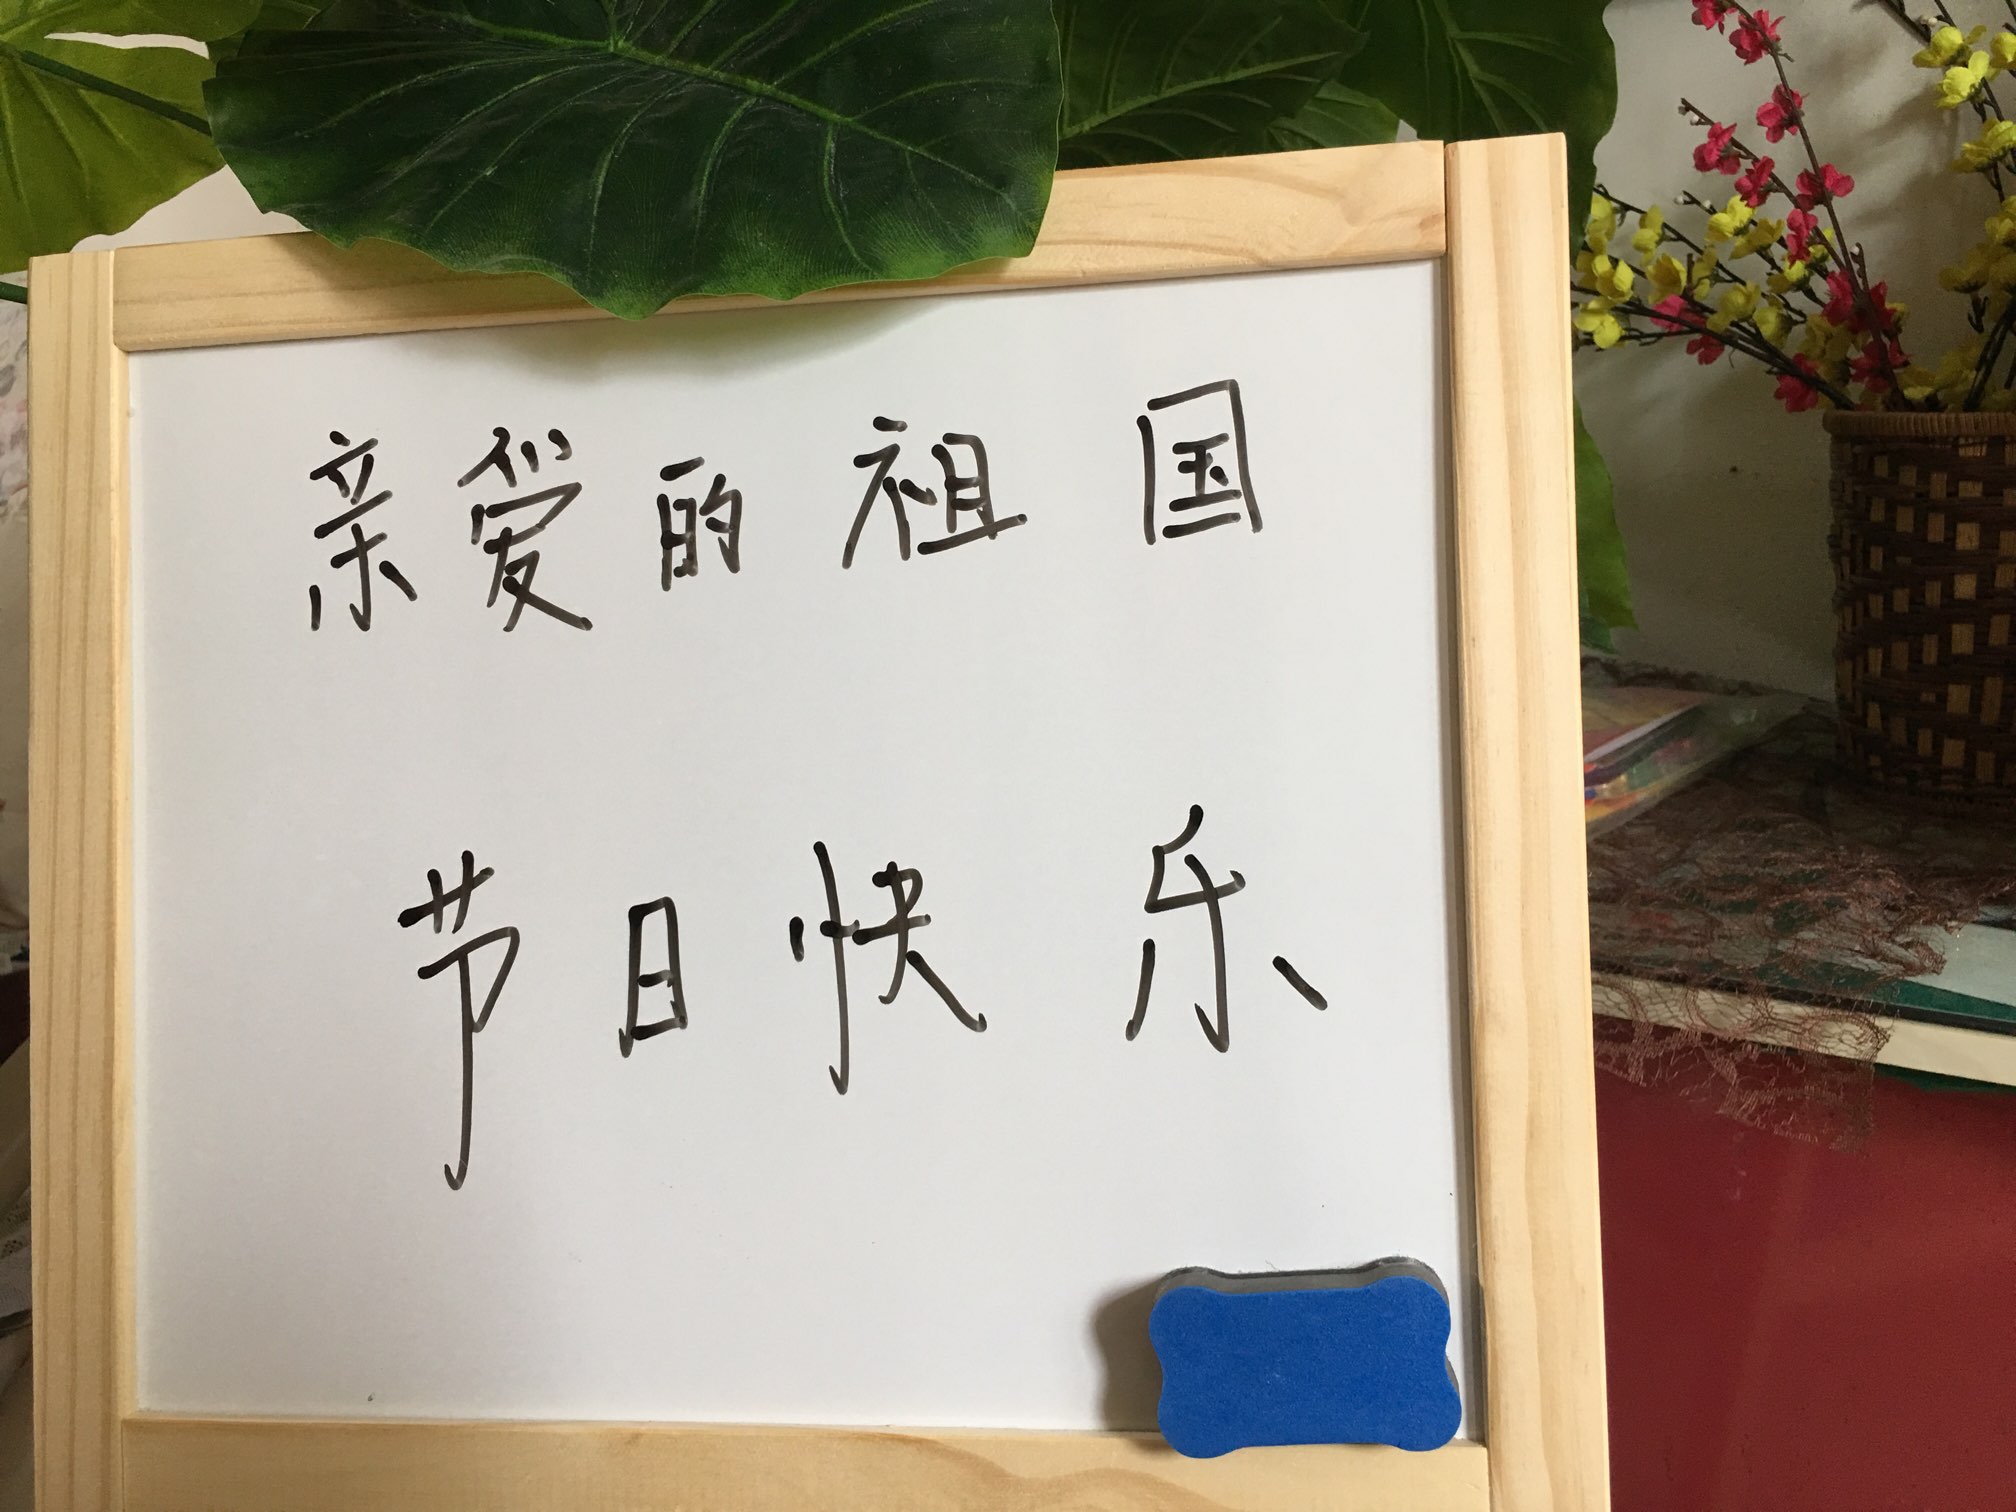 亲爱的祖国
节日快乐